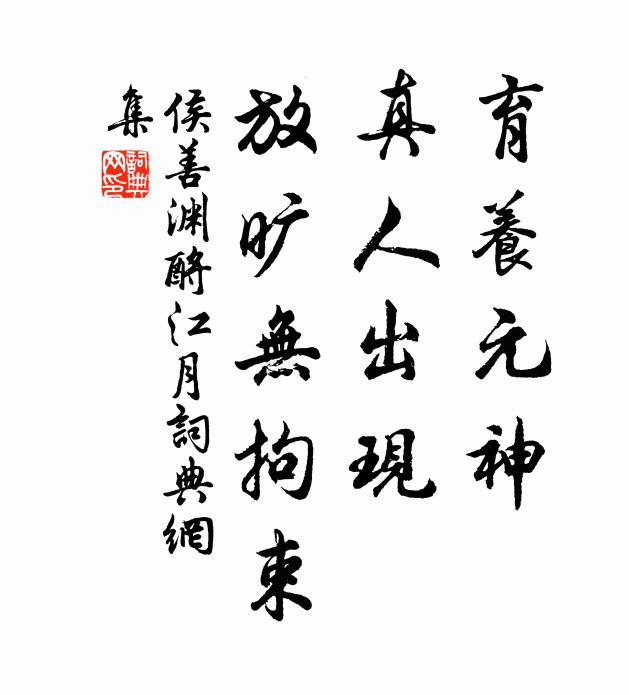 育養元神
真人出現
放旷無拘束
侯善渊酹江月詞典網
集
詞典
网印